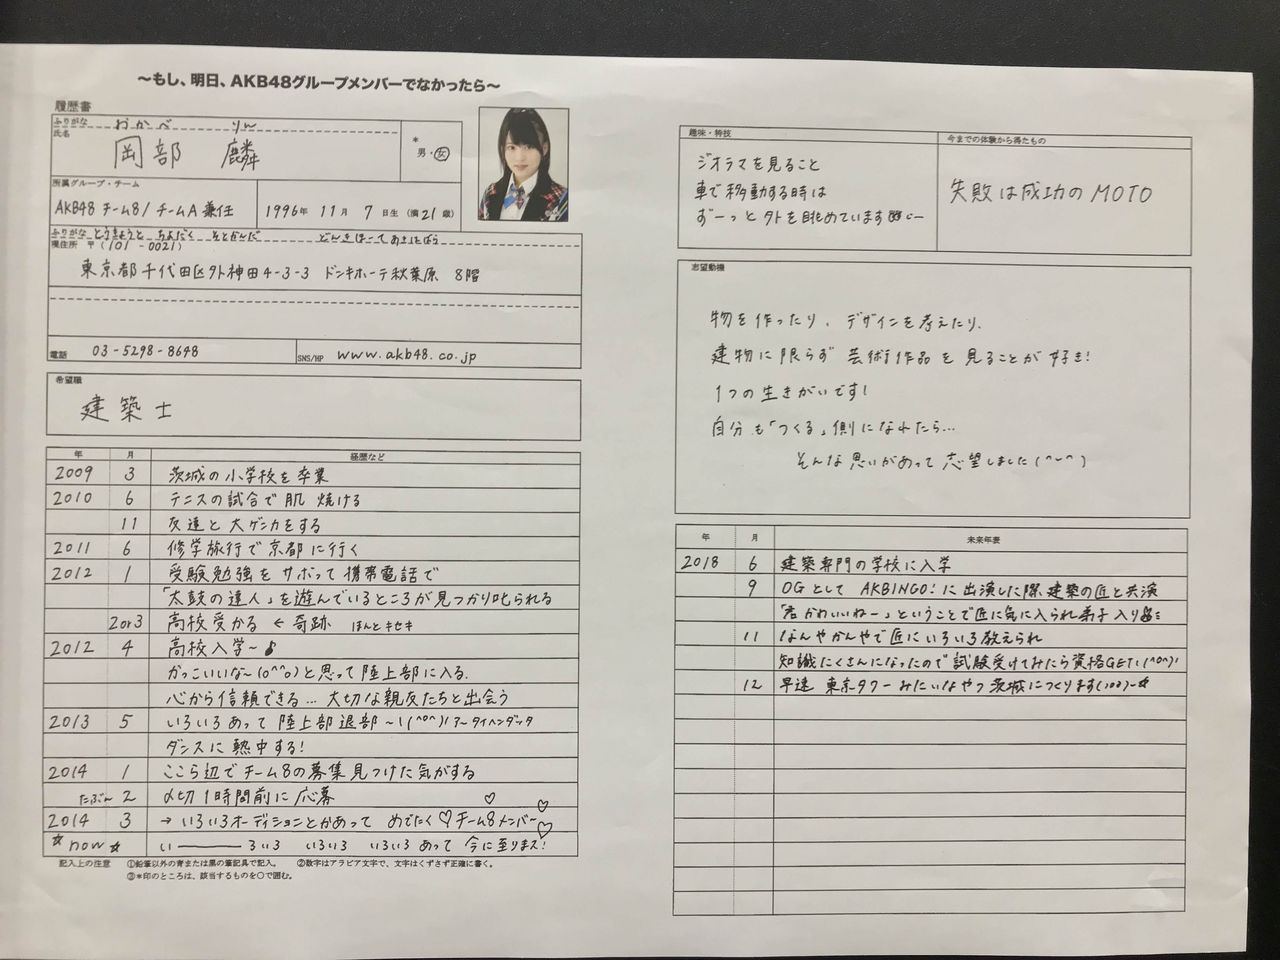 ～もし、明日、AKB48グループメンバーでなかったら～
履歴書
ふりがな おかべ りん
氏名 岡部 麟
*
男・女
所属グループ・チーム
AKB48 チーム8/チームA兼任
1996年 11月 7日生 (満21歳)
ふりがな とうきょうと ちよだく そとかんだ どんきほーてあきはばら
現住所 〒(101-0021)
東京都千代田区外神田4-3-3 ドンキホーテ秋葉原 8階
電話 03-5298-8648
SNS/HP www.akb48.co.jp
希望職
建築士
年 月 経歴など
2009 3 茨城の小学校を卒業
2010 6 テニスの試合で肌 焼ける
11 友達と大ゲンカをする
2011 6 修学旅行で京都に行く
2012 1 受験勉強をサボって携帯電話で
「太鼓の達人」を遊んでいるところが見つかり叱られる
2013 高校受かる ← 奇跡 ほんとキセキ
2012 4 高校入学～♪
かっこいいな～(o^^o)と思って陸上部に入る.
心から信頼できる…大切な親友たちと出会う
2013 5 いろいろあって 陸上部退部～!(^o^)!ア～タイヘンダッタ
ダンスに熱中する!
2014 1 ここら辺でチーム8の募集見つけた気がする
たぶん 2 〆切1時間前に応募
2014 3 → いろいろオーディションとかあって めでたく♡チーム8メンバー♡
☆now☆ い――ろいろ いろいろ いろいろあって 今に至りまス!
記入上の注意 ①鉛筆以外の青または黒の筆記具で記入。 ②数字はアラビア文字で、文字はくずさず正確に書く。
③*印のところは、該当するものを○で囲む。
趣味・特技
ジオラマを見ること
車で移動する時は
ずーっと外を眺めています
今までの体験から得たもの
失敗は成功のMOTO
志望動機
物を作ったり、デザインを考えたり、
建物に限らず 芸術作品を見ることが好き!
1つの生きがいです!
自分も「つくる」側になれたら…
そんな思いがあって志望しました(^~^)
年 月 未来年表
2018 6 建築専門の学校に入学
9 OGとして AKBINGO!に出演した際、建築の匠と共演
「君かわいいねー」ということで匠に気に入られ弟子入り
11 なんやかんやで匠にいろいろ教えられ
知識たくさんになったので試験受けてみたら資格GET!(^o^)!
12 早速 東京タワーみたいなやつ茨城につくります